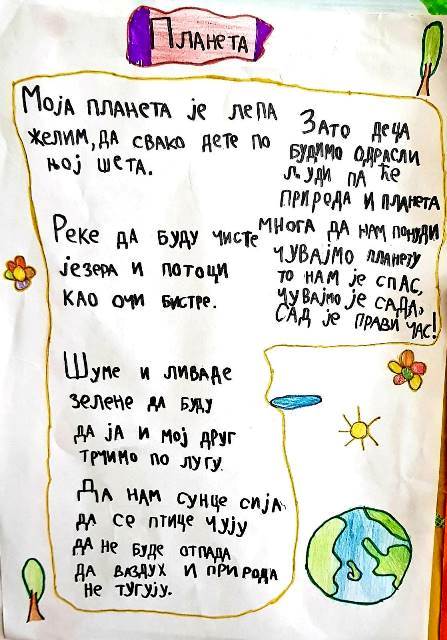 Планета
Моја планета је лепа
желим, да свако дете по
њој шета.
Реке да буду чисте
језера и потоци
као очи бистре.
Шуме и ливаде
зелене да буду
да ја и мој друг
трчимо по лугу.
Да нам сунце сија
да се птице чују
да не буде отпада
да ваздух и природа
не тугују.
Зато деца
будимо одрасли
људи па ће
природа и планета
многа да нам понуди
чувајмо планету
то нам је спас,
чувајмо је сада,
сад је прави час!